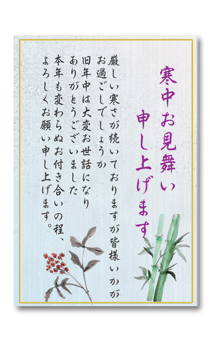 寒中お見舞い
申し上げます
厳しい寒さが続いておりますが皆様いかが
お過ごしでしょうか
旧年中は大変お世話になり
ありがとうございました
本年も変わらぬお付き合いの程、
よろしくお願い申し上げます。